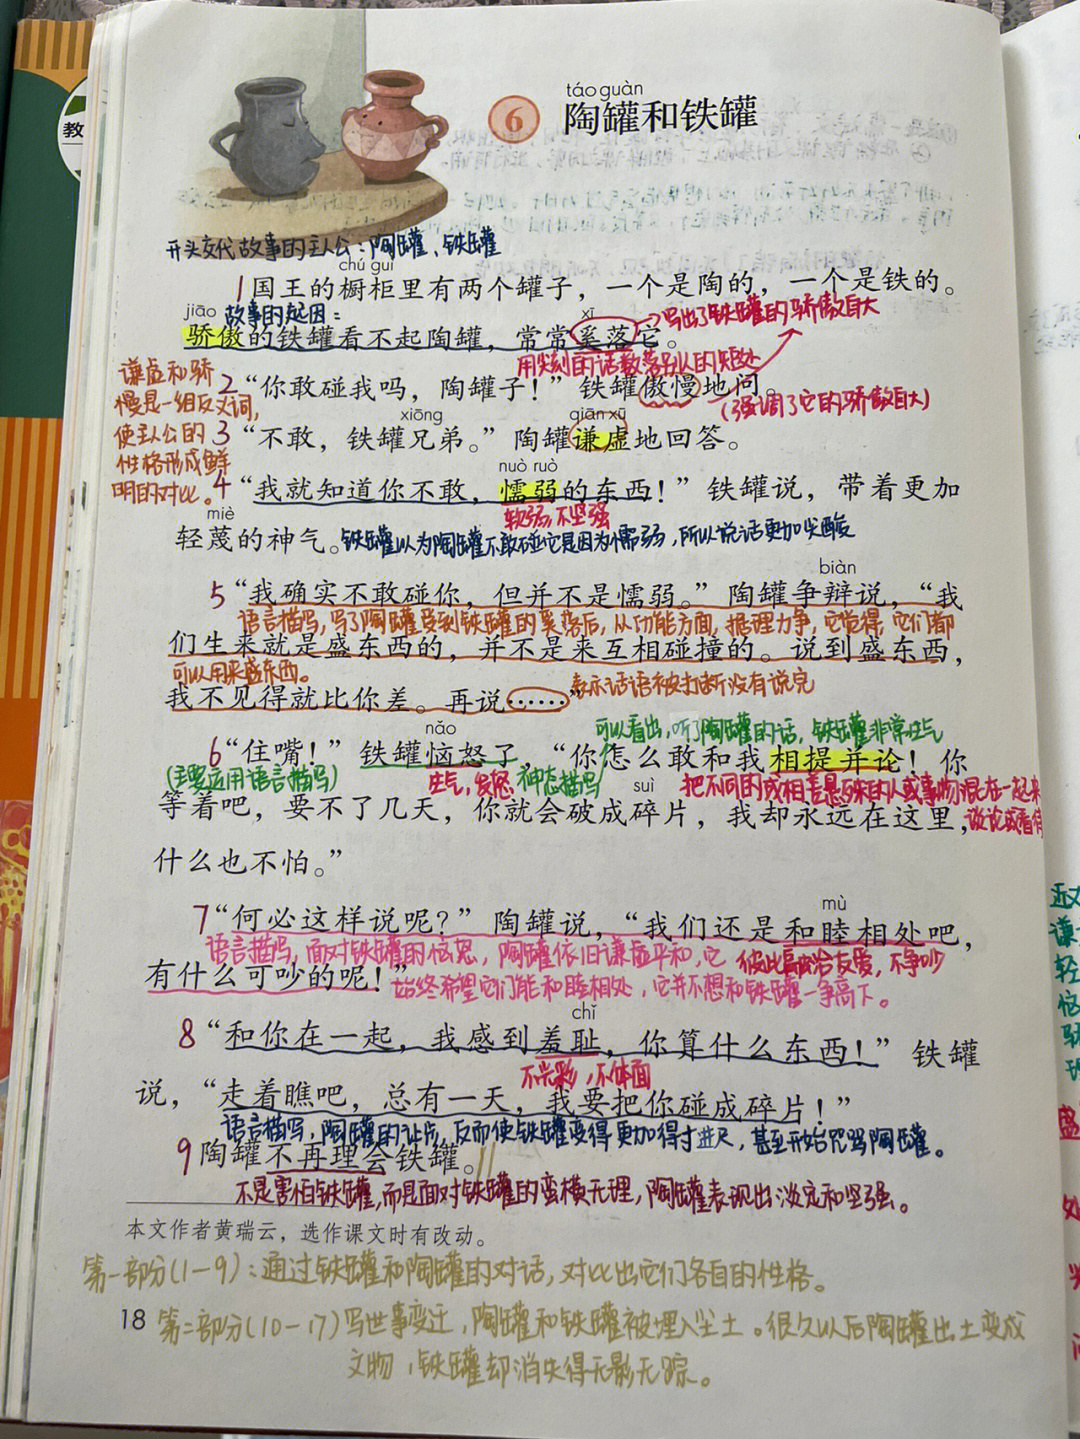 教
táo guàn
6 陶罐和铁罐
开头交代故事的主人公：陶罐、铁罐
chú guì
1 国王的橱柜里有两个罐子，一个是陶的，一个是铁的。
jiāo 故事的起因： xī 写出了铁罐的骄傲自大
骄傲的铁罐看不起陶罐，常常奚落它。
用尖刻的话数落别人的短处
谦虚和骄
慢是一组反义词，
使主人公的
性格形成鲜
明的对比。
2 “你敢碰我吗，陶罐子！” 铁罐傲慢地问。
(强调了它的骄傲自大)
xiōng qiān xū
3 “不敢，铁罐兄弟。” 陶罐谦虚地回答。
nuò ruò
4 “我就知道你不敢，懦弱的东西！” 铁罐说，带着更加
软弱，不坚强
miè
轻蔑的神气。铁罐以为陶罐不敢碰它是因为懦弱，所以说话更加尖酸
biàn
5 “我确实不敢碰你，但并不是懦弱。” 陶罐争辩说，“我
语言描写，写了陶罐受到铁罐的奚落后，从功能方面，据理力争，它觉得，它们都
们生来就是盛东西的，并不是来互相碰撞的。说到盛东西，
可以用来盛东西。
我不见得就比你差。再说……” 表示话语被打断没有说完
nǎo 可以看出，听了陶罐的话，铁罐非常生气
6 “住嘴！” 铁罐恼怒了，“你怎么敢和我相提并论！你
(主要运用语言描写) 生气，发怒 神态描写 suì 把不同的或相差悬殊的人或事物混在一起来
等着吧，要不了几天，你就会破成碎片，我却永远在这里，谈论或看待
什么也不怕。”
mù
7 “何必这样说呢？” 陶罐说，“我们还是和睦相处吧，
语言描写，面对铁罐的恼怒，陶罐依旧谦虚平和，它 彼此融洽友爱，不争吵
有什么可吵的呢！” 始终希望它们能和睦相处，它并不想和铁罐一争高下。
chǐ
8 “和你在一起，我感到羞耻，你算什么东西！” 铁罐
不光彩，不体面
说，“走着瞧吧，总有一天，我要把你碰成碎片！”
语言描写，陶罐的让步，反而使铁罐变得更加得寸进尺，甚至开始咒骂陶罐。
9 陶罐不再理会铁罐。
不是害怕铁罐，而是面对铁罐的蛮横无理，陶罐表现出淡定和坚强。
本文作者黄瑞云，选作课文时有改动。
第一部分(1—9)：通过铁罐和陶罐的对话，对比出它们各自的性格。
18 第二部分(10—17)写世事变迁，陶罐和铁罐被埋入尘土。很久以后陶罐出土变成
文物，铁罐却消失得无影无踪。